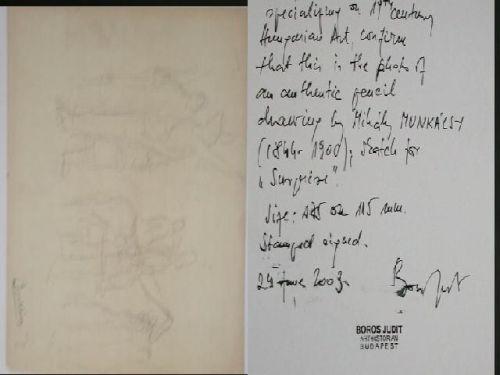 specialising on 19th century
Hungarian Art, confirm
that this is the photo of
an authentic pencil
drawing by Mihály MUNKÁCSY
(1844-1900); sketch for
"Surprise".
Size: on 115 mm.
Stamped signed.
2003.
BOROS JUDIT
ARTHISTORIAN
BUDAPEST